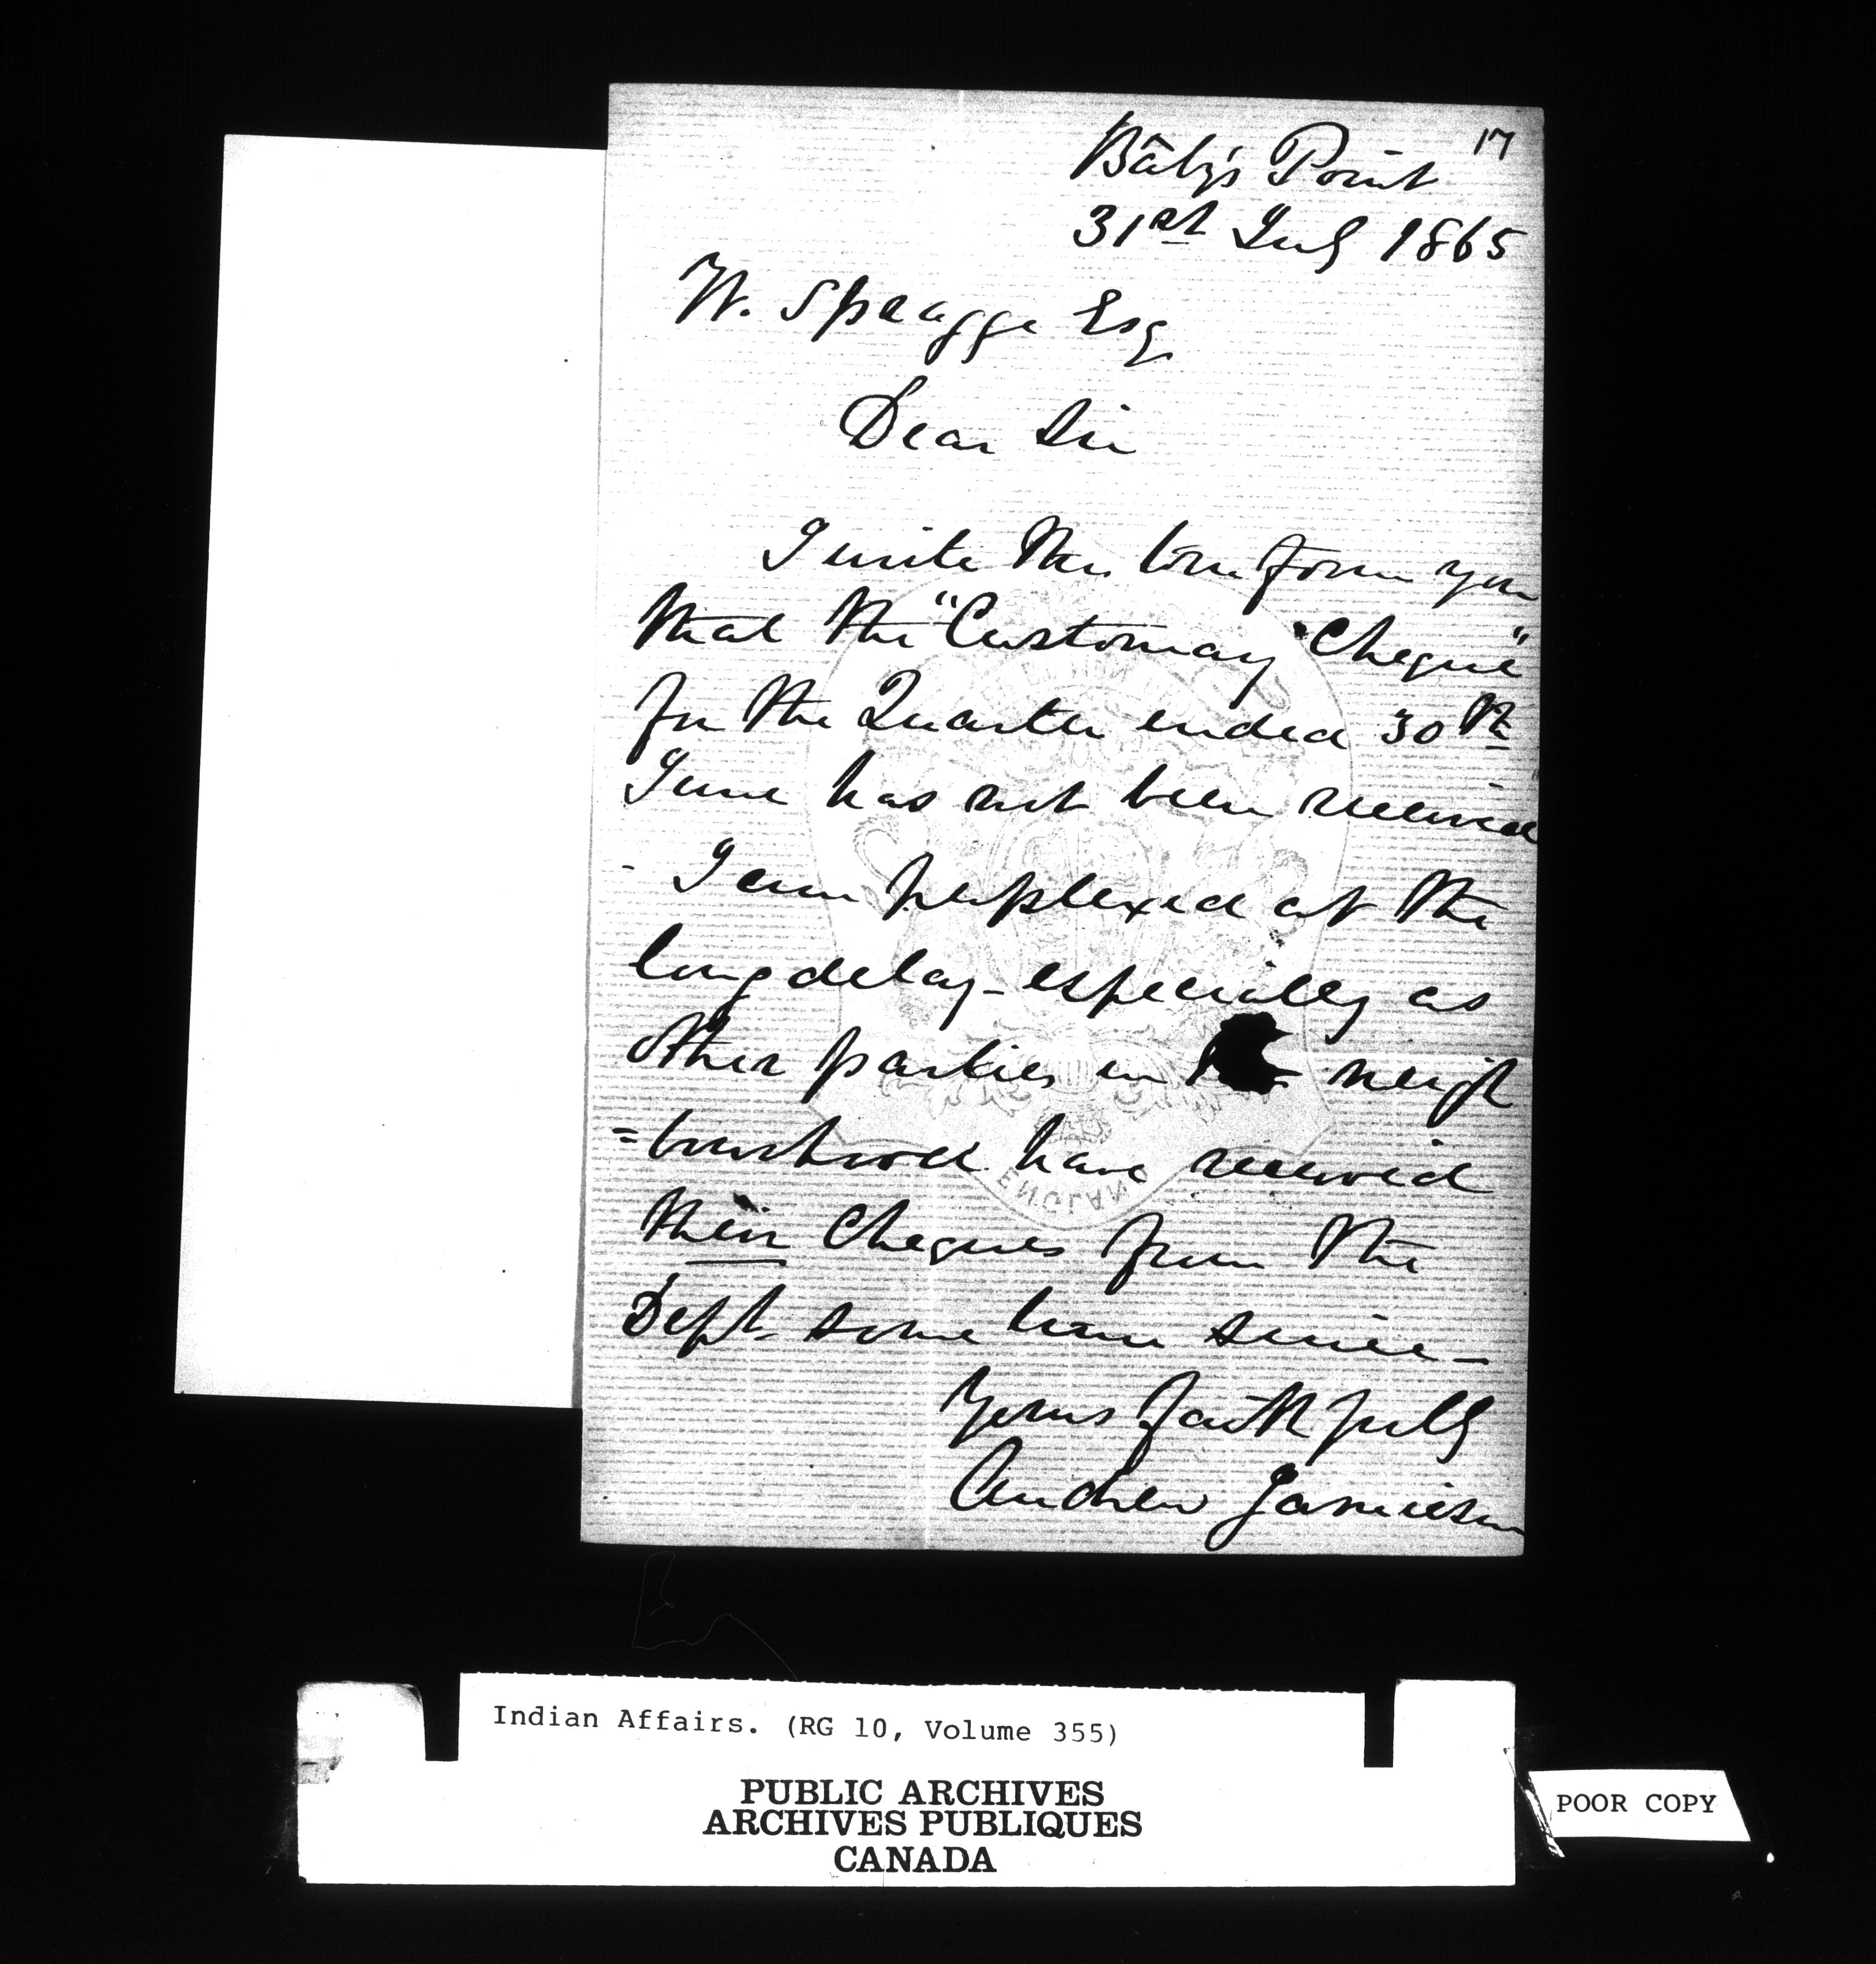 17
Bâby's Point
31st July 1865
W. Spragge Esq
Dear Sir
I write this to inform you
that the "Customary "Cheque"
for the Quarter ended 30th
June has not been received
- I am perplexed at the
long delay - especially as
other parties in neigh
=bourhood have received
their Cheques from the
Dept. some time since -
Yours faithfully
Andrew Jamieson
ENGLAN
Indian Affairs. (RG 10, Volume 355)
PUBLIC ARCHIVES
ARCHIVES PUBLIQUES
CANADA
POOR COPY